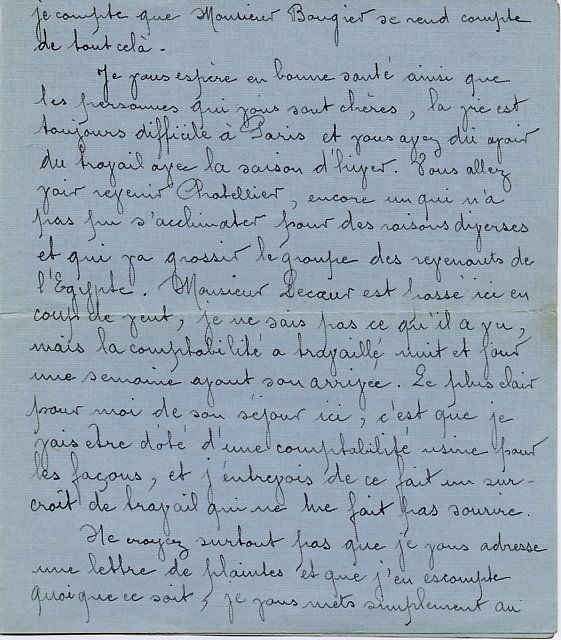 je compte que Monsieur Bougier se rend compte
de tout celà.
Je vous espère en bonne santé ainsi que
les personnes qui vous sont chères, la vie est
toujours difficile à Paris et vous avez dû avoir
du travail avec la saison d'hiver. Vous allez
voir revenir Chatellier, encore un qui n'a
pas pu s'acclimater pour des raisons diverses
et qui va grossir le groupe des revenants de
l'Egypte. Monsieur Lecœur est passé ici en
coup de vent, je ne sais pas ce qu'il a vu,
mais la comptabilité a travaillé nuit et jour
une semaine avant son arrivée. Le plus clair
pour moi de son séjour ici, c'est que je
vais être dôté d'une comptabilité usine pour
les façons, et j'entrevois de ce fait un sur-
croît de travail qui ne me fait pas sourire.
Ne croyez surtout pas que je vous adresse
une lettre de plaintes et que j'en escompte
quoique ce soit, je vous mets simplement au